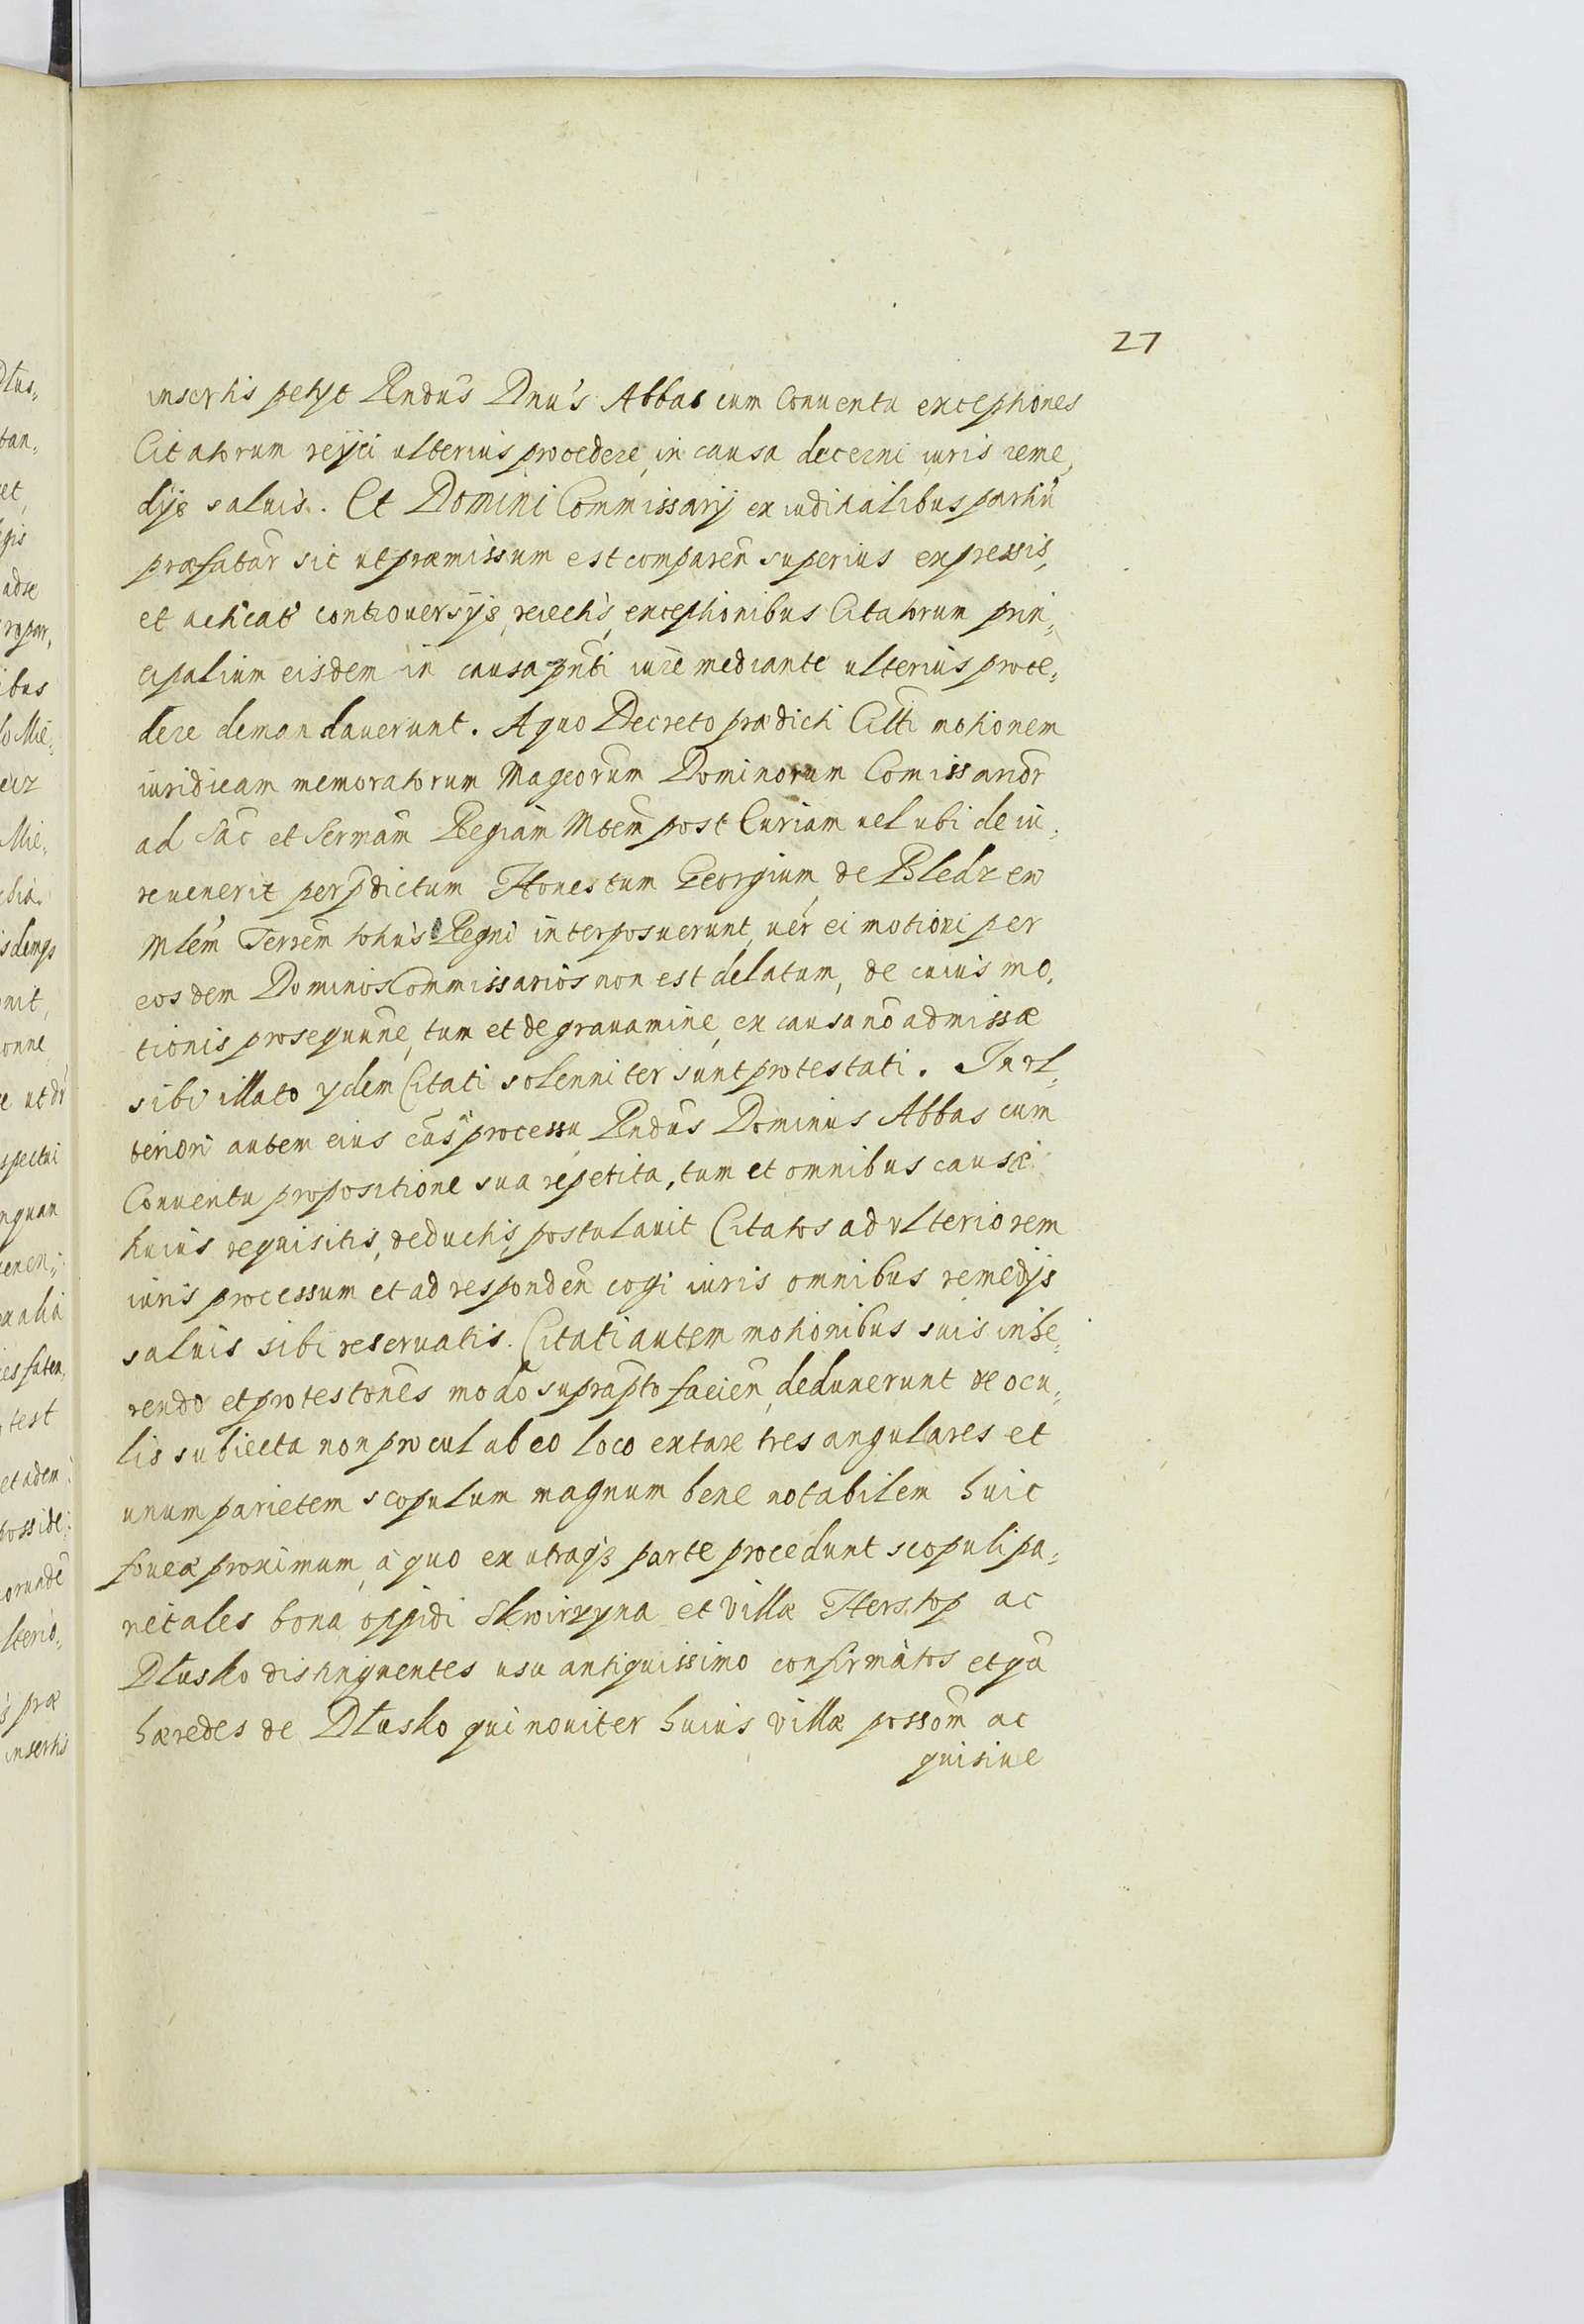 27
insertis petyt Rndus Dnus Abbas cum Conuentu exceptiones
Citatorum reijci ulterius procedere in causa decerni iuris reme,
dijs saluis. Et Domini Commissarij ex iuditialibus partiũ
præfatar sic ut præmissum est compareñ superius expressis,
et acticat controuersijs, reiectis exceptionibus Citatorum prin,
cipalium eisdem in causa pñti iure mediante ulterius proce,
dere demandauerunt. A quo Decreto prædicti Citti motionem
iuridicam memoratorum Magcorum Dominorum Comissarior
ad Sac et Sermam Regiam Mtem post Curiam uel ubi de iu,
re uenerit per pdictum Honestum Georgium de Bledzew
Mlem Terrem totius Regni interposuerunt, uer ei motioni per
eosdem Dominos Commissarios non est delatum, de cuius mo,
tionis prosequune, tum et de grauamine, ex causa nõ admissæ
sibi illato ydem Citati solenniter sunt protestati. In vl,
teriori autem eius cãs processu Rndus Dominus Abbas cum
Conuentu propositione sua repetita, tum et omnibus causæ
huius requisitis, deductis, postulauit Citatos ad vlteriorem
iuris processum et ad respondeñ cogi iuris omnibus remedijs
saluis sibi reseruatis. Citati autem motionibus suis inhe,
rendo et protestones modo suprapto facieñ, deduxerunt de ocu,
lis subiecta non procul ab eo loco extare tres angulares et
unum parietem scopulum magnum bene notabilem huic
foueæ proximum, a quo ex utraq3 parte procedunt scopuli pa,
rietales bona oppidi Skwirzyna et villæ Herstop ac
Dłusko distinguentes usu antiquissimo confirmatos et qã
hæredes de Dłusko qui nouiter huius villæ possom ac
quisiue